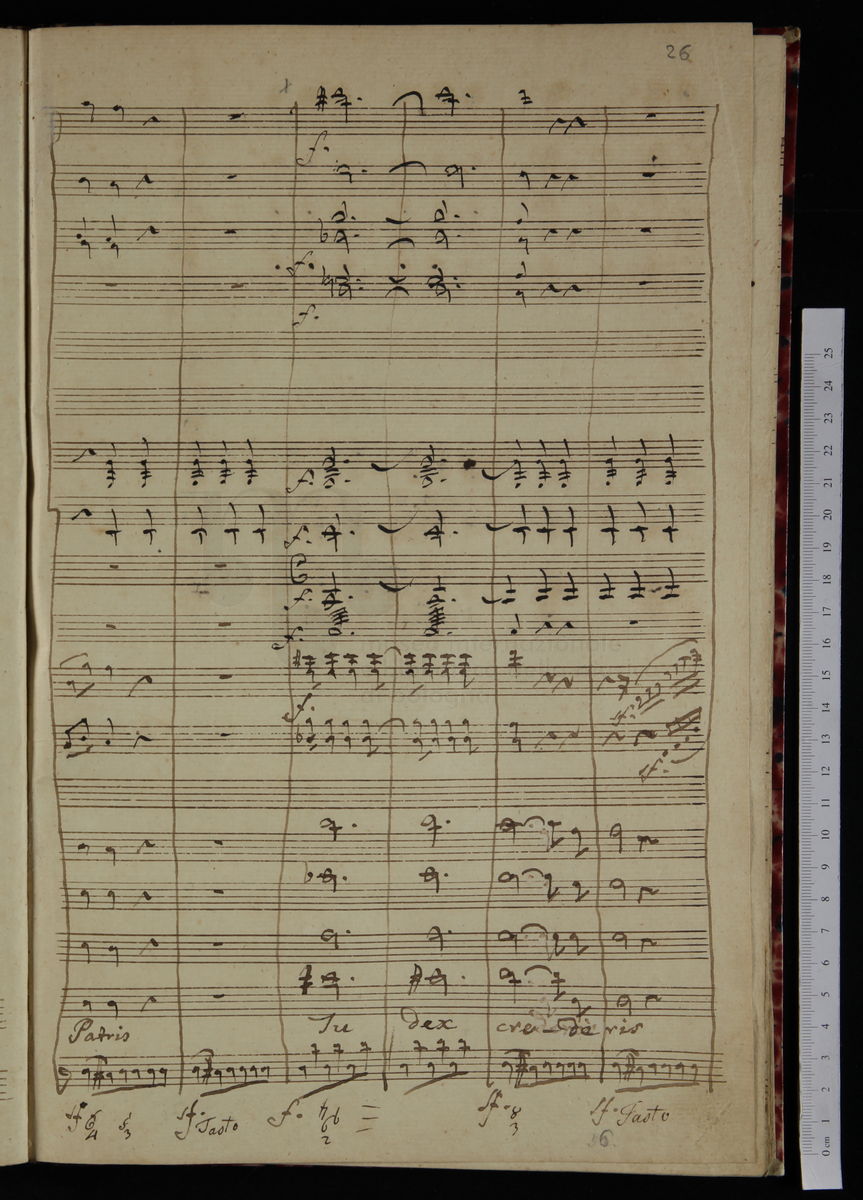 26
f.
f.
f.
f.
f.
f.
f.
f.
sf.
sf.
Patris Ju dex cre-de ris
sf. 6 4 5 3 sf. Tasto f. ♮6 6 2 = sf. 8 3 sf. Tasto
16
0 cm 1 2 3 4 5 6 7 8 9 10 11 12 13 14 15 16 17 18 19 20 21 22 23 24 25